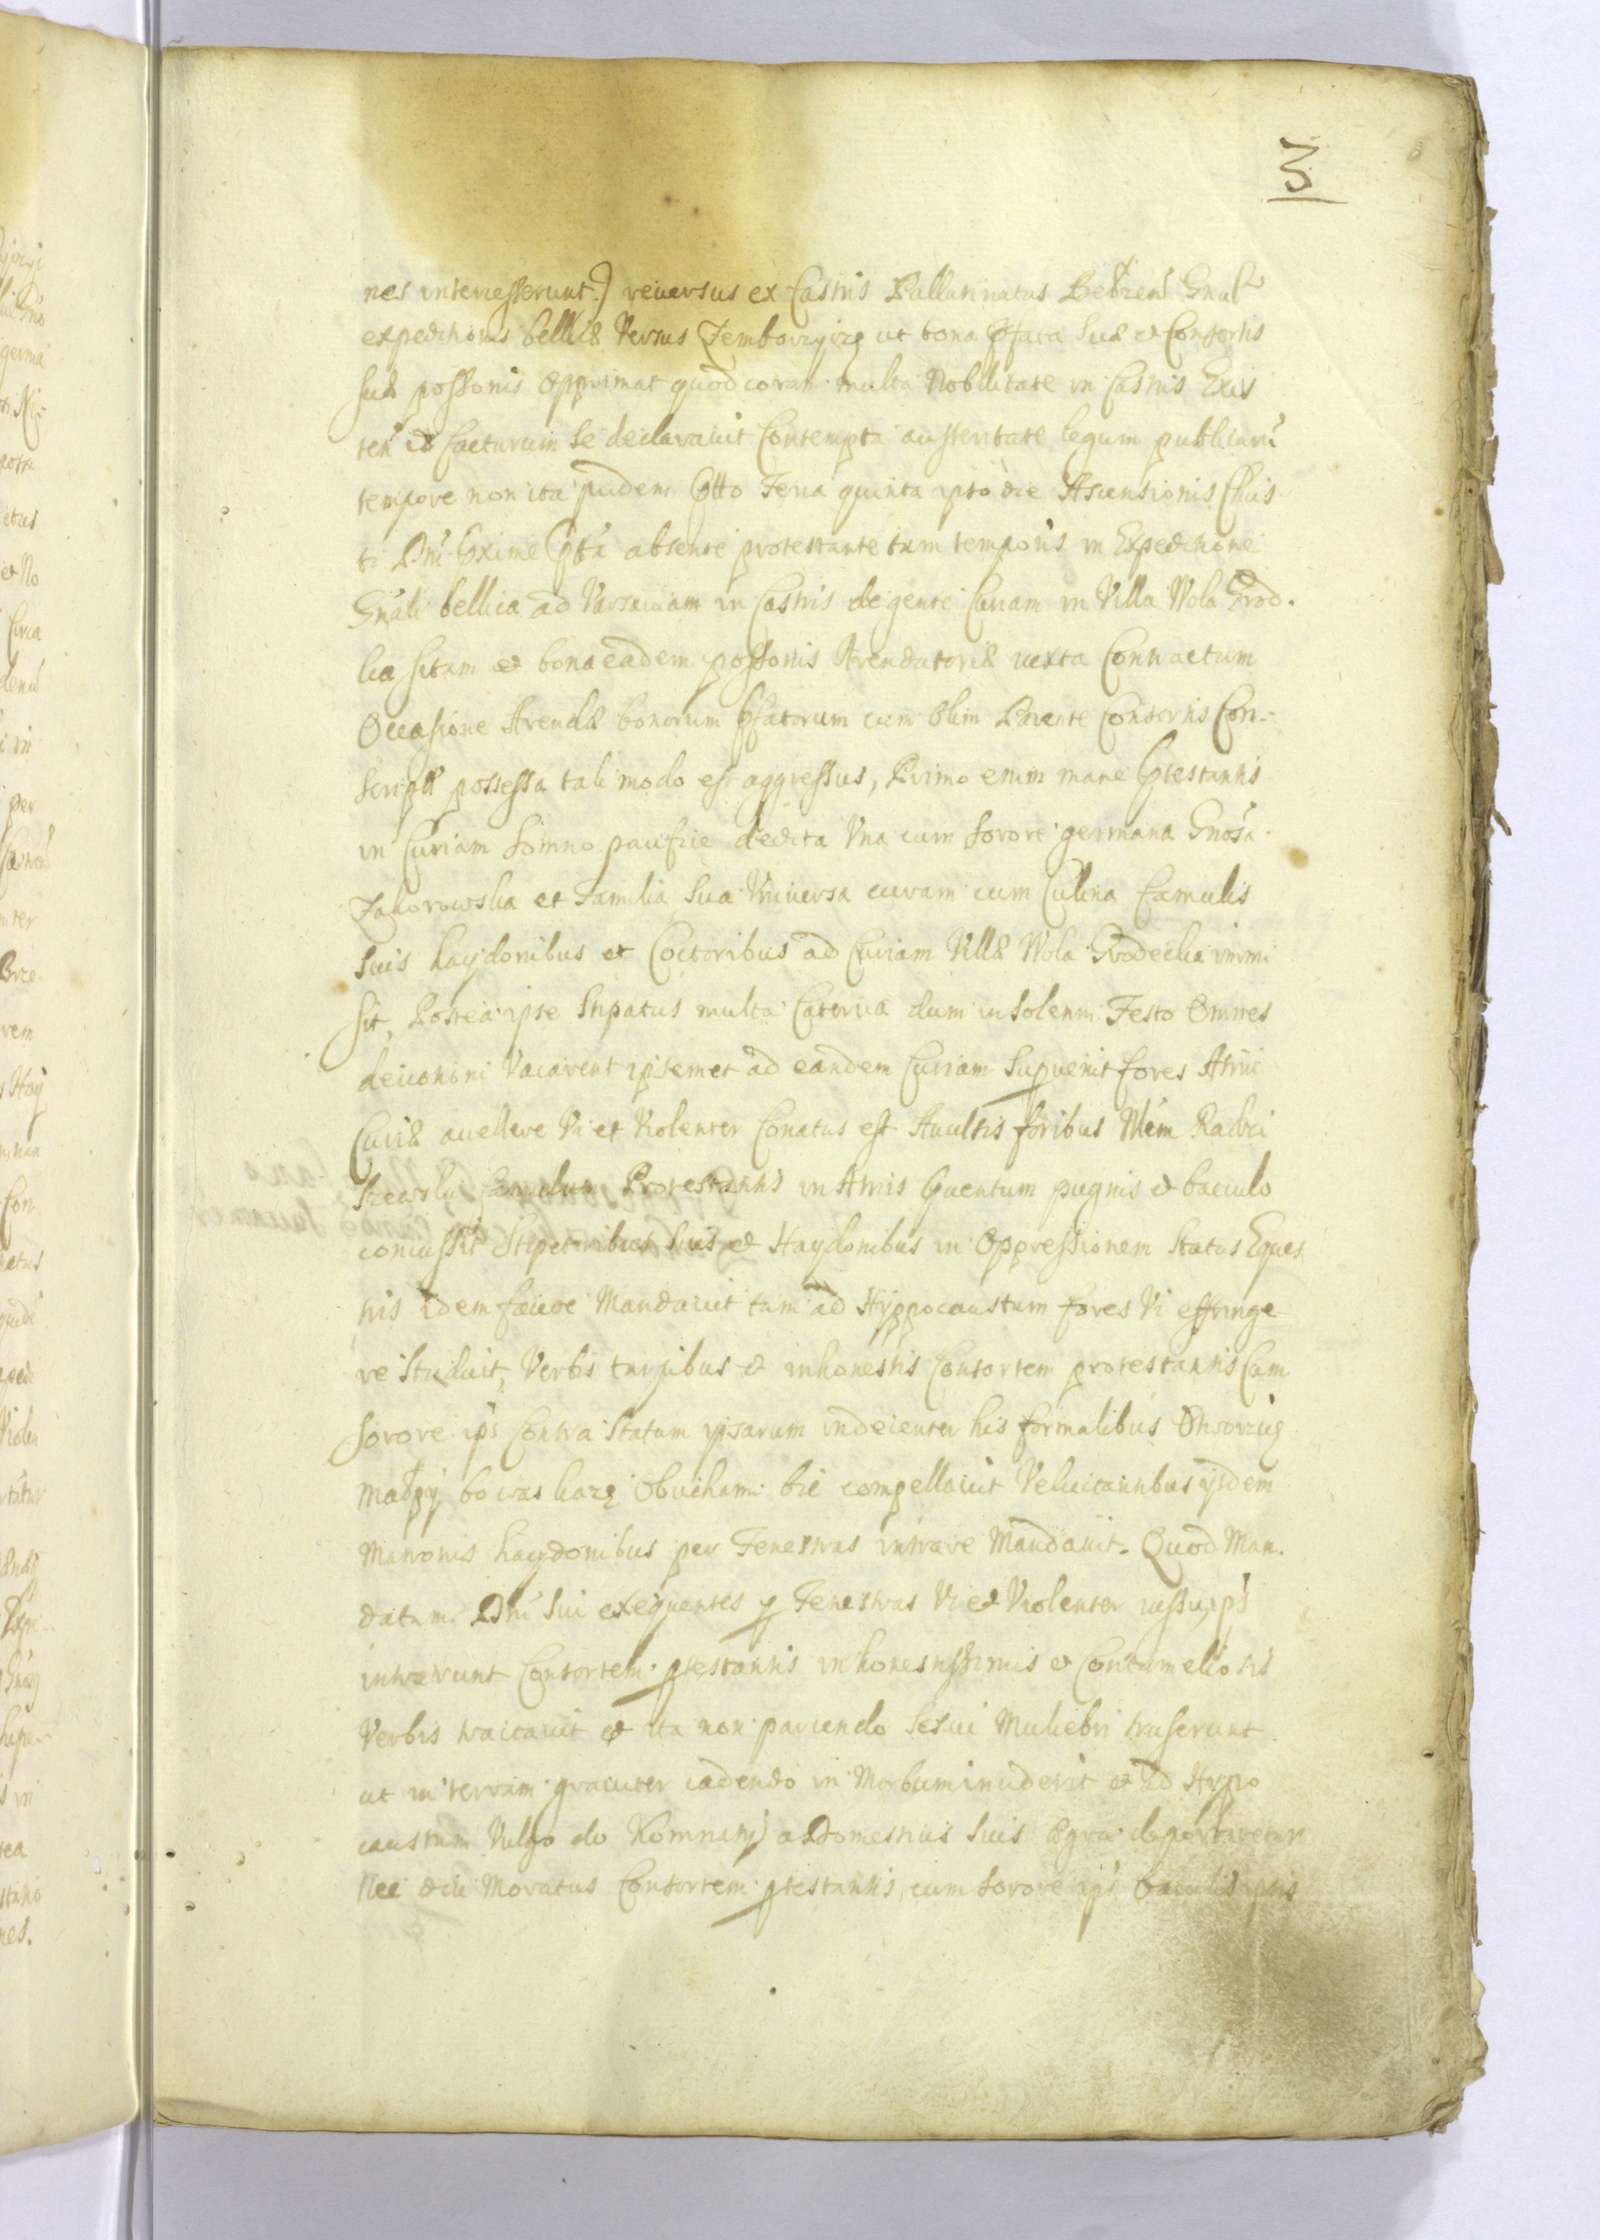 3
nes intercesserunt) reversus ex Castris Pallatinatus Belzen Gnal
expeditionis bellicæ Versus Zemborzyce ut bona pfata Suæ et Consortis
suæ possonis Opprimat quod coram multa Nobilitate in Castris Exis
ten id facturum se declaravit Contempta austeritate legum publicaru
tempore non ita pridem Feria quinta ipso die Ascensionis Chris
ti Dni absente protestante tum temporis in Expeditione
Gnali bellica ad Varsaviam in Castris degente Curiam in Villa Wola Grod.
cka sitam et bona eadem possonis Arendatoriæ iuxta Contractum
Occasione Arendæ bonorum pfatorum cum Olim Parente Consortis Con-
scriptæ possessa tali modo est aggressus, Primo enim mane Ptestantis
in Curiam Somno dedita Vna cum Sorore germana Gnosa
Zaborowska et Familia Sua Vniversa curam cum Culina Famulis
Suis haydonibus et Coctoribus ad Curiam Villæ Wola Grodecka immi
sit, Postea ipse Stipatus multa Caterva dum in Solenni Festo Omnes
devotioni Vacarent ipsemet ad eandem Curiam Supvenit fores Atrii
Curiæ avellere Vi et Violenter Conatus est Avulsis foribus
famulum Protestantis in Atriis pugnis et baculo
concussit Stipatoribus Suis et Haydonibus in Oppressionem Status Eques
tris idem facere Mandavit tum ad Hyppocaustum fores Vi effringe
re Studuit, Verbis turpibus et inhonestis Consortem protestantis Cum
sorore ips Contra Statum ipsarum indecenter his formalibus Othworzcie
bo was każę Obuchami bic compellavit ijsdem
Matronis haydonibus per Fenestras intrare Mandavit. Quod Man.
datum Dni Sui exequentes p Fenestras Vi et Violenter iussu ips
intrarunt Consortem ptestantis inhonestissimis et Contumeliosis
Verbis tractavit et ita non parcendo Sexui Muliebri truserunt
ut in terram graviter cadendo in Morbum inciderit et ad Hypo
caustum Vulgo do Komnaty a Domesticis Suis deportaretur
Nec diu Moratus Consortem ptestantis, cum Sorore ips baculis